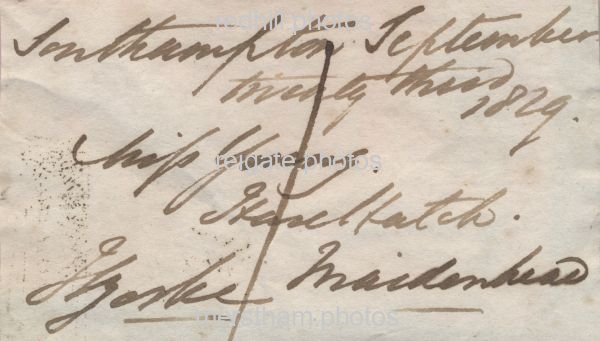 redhill photos
Southampton September
twenty third
1829.
Miss
reigate photos
Hare Hatch.
JYorke Maidenhead
merstham photos